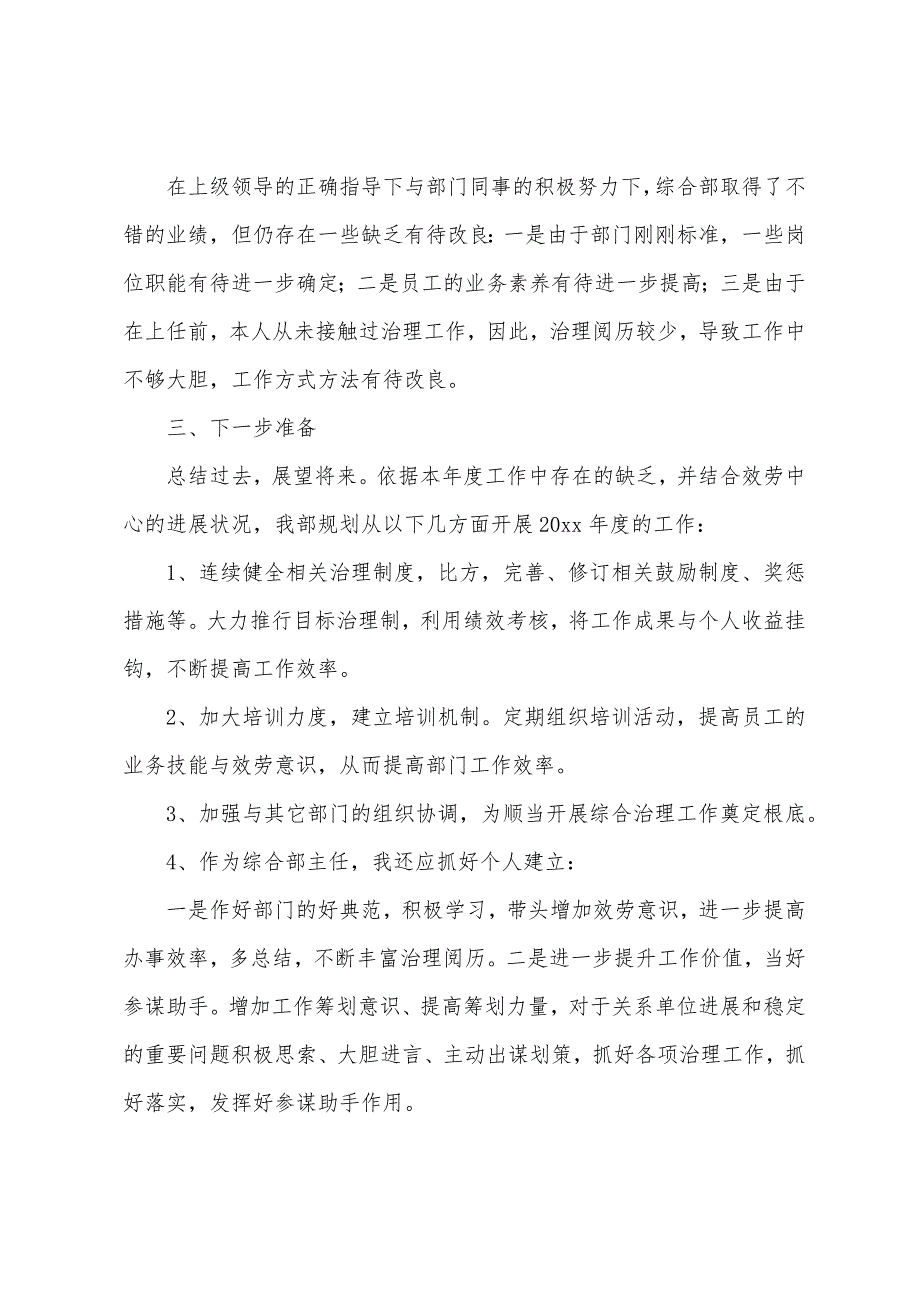 在上级领导的正确指导下与部门同事的积极努力下，综合部取得了不
错的业绩，但仍存在一些缺乏有待改良：一是由于部门刚刚标准，一些岗
位职能有待进一步确定；二是员工的业务素养有待进一步提高；三是由于
在上任前，本人从未接触过治理工作，因此，治理阅历较少，导致工作中
不够大胆，工作方式方法有待改良。
三、下一步准备
总结过去，展望将来。依据本年度工作中存在的缺乏，并结合效劳中
心的进展状况，我部规划从以下几方面开展 20xx 年度的工作：
1、连续健全相关治理制度，比方，完善、修订相关鼓励制度、奖惩
措施等。大力推行目标治理制，利用绩效考核，将工作成果与个人收益挂
钩，不断提高工作效率。
2、加大培训力度，建立培训机制。定期组织培训活动，提高员工的
业务技能与效劳意识，从而提高部门工作效率。
3、加强与其它部门的组织协调，为顺当开展综合治理工作奠定根底。
4、作为综合部主任，我还应抓好个人建立：
一是作好部门的好典范，积极学习，带头增加效劳意识，进一步提高
办事效率，多总结，不断丰富治理阅历。二是进一步提升工作价值，当好
参谋助手。增加工作筹划意识、提高筹划力量，对于关系单位进展和稳定
的重要问题积极思索、大胆进言、主动出谋划策，抓好各项治理工作，抓
好落实，发挥好参谋助手作用。